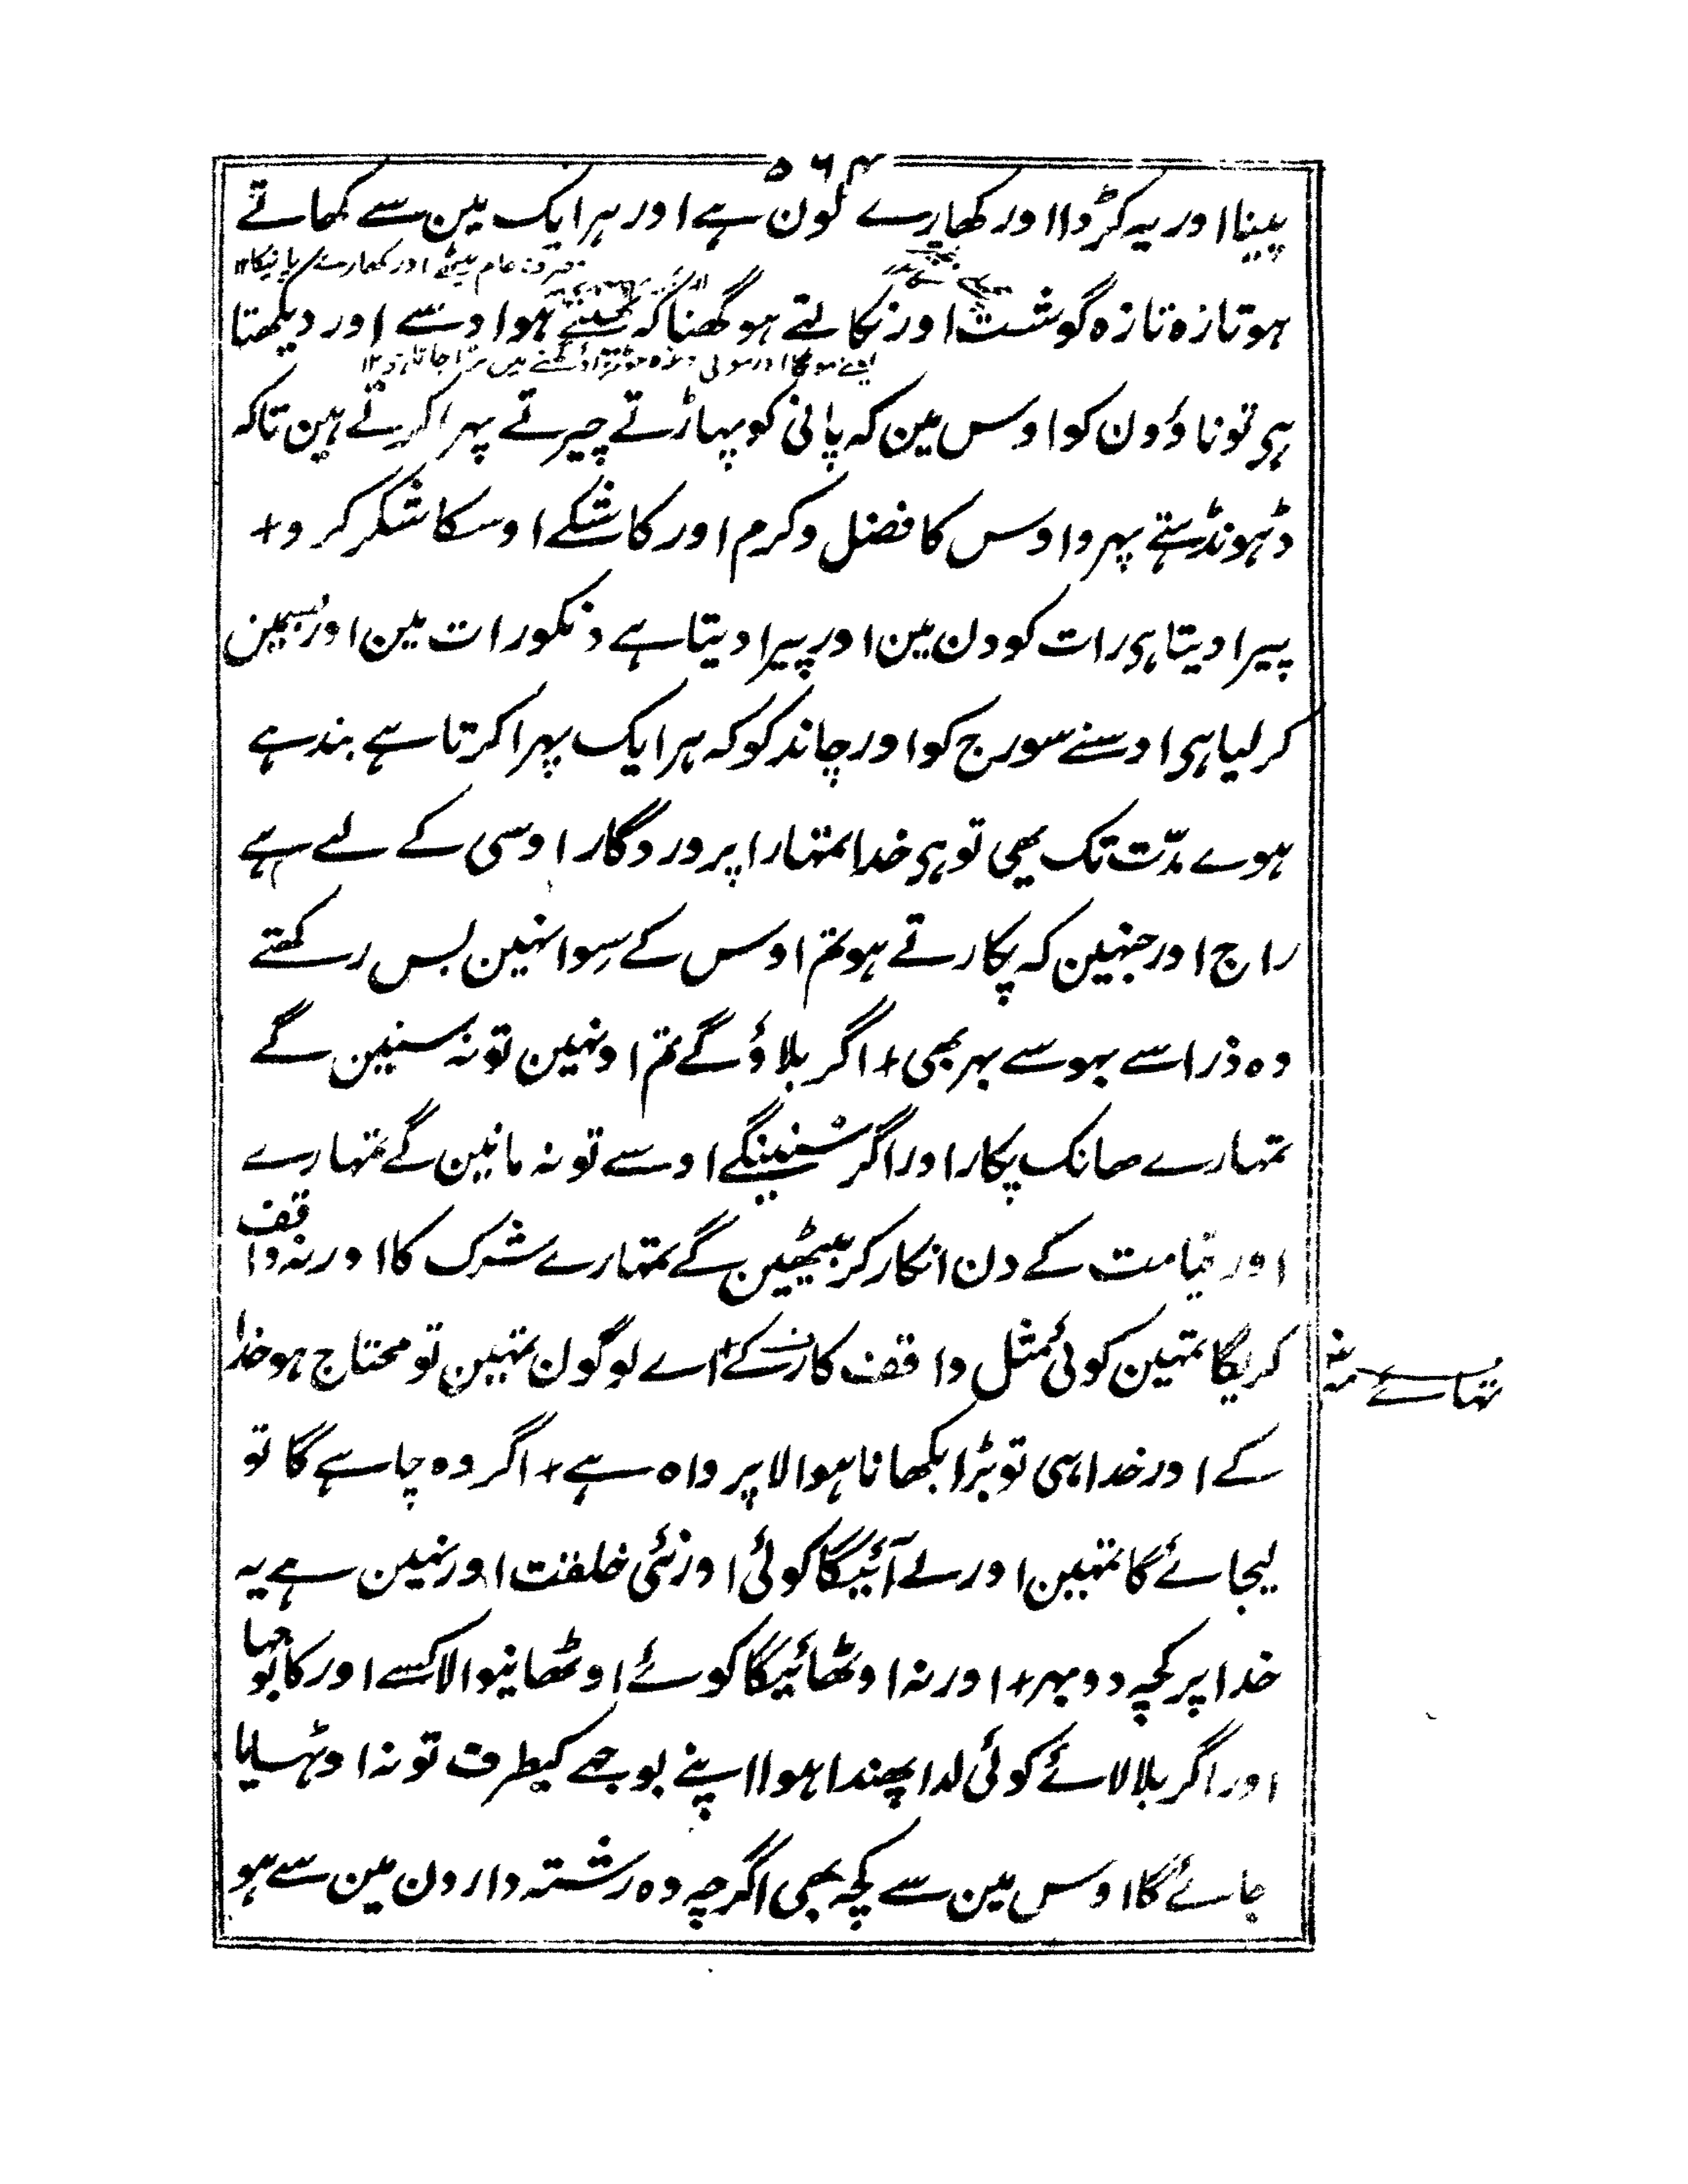 ۵۶۴
پینا اور یہ کڑوا اور کھارے لون ہے اور ہر ایک مین سے کھاتے
عام میٹھے اور کھارے پانیکا ۱۲
ہو تازہ تازہ گوشت اور نکالتے ہو گھنا کہ پہنتے ہو اوسے اور دیکھتا
ہی تو ناؤون کو اوس مین کہ پانی کو پہاڑتے چیرتے پہرا کرتے ہین تاکہ
ڈہونڈہتے پہرو اوس کا فضل و کرم اور کاشکے اوسکا شکر کرو +
پیرا دیتا ہی رات کو دن مین اور پیرا دیتا ہے دنکو رات مین اور بسمین
کر لیا ہی اوسنے سورج کو اور چاند کو کہ ہر ایک پہرا کرتا ہے بندہے
ہوے مدّت تک بھی تو ہی خدا تمہارا پروردگار اوسی کے لیے ہے
راج اور جنہین کہ پکارتے ہو تم اوس کے سِوا نہین بس رکھتے
وہ ذرا سے بہوسے بہر بھی + اگر بلاؤ گے تم اونہین تو نہ سنین گے
تمہارے ہانک پکار اور اگر سُنینگے اوسے تو نہ مانین گے تمہارے
اور قیامت کے دن انکار کر بیٹھین گے تمہارے شرک کا اور نہ واقف
کریگا تمہین کوئی مثل واقف کار کے + اے لوگون تمہین تو محتاج ہو خدا
کے اور خدا ہی تو بڑا بکھانا ہوا لاپرواہ ہے + اگر وہ چاہے گا تو
لیجائے گا تمہین اور لے آئیگا کوئی اور نئی خلقت اور نہین ہے یہ
خدا پر کچہ دوبہر + اور نہ اوٹھائیگا کوئے اوٹھانیوالا کسے اور کا بوجہا
اور اگر بلالائے کوئی لدا پھندا ہوا اپنے بوجہے کیطرف تو نہ اوٹہایا
جائے گا اوس مین سے کچہ بھی اگرچہ وہ رشتہ دارون مین سے ہو